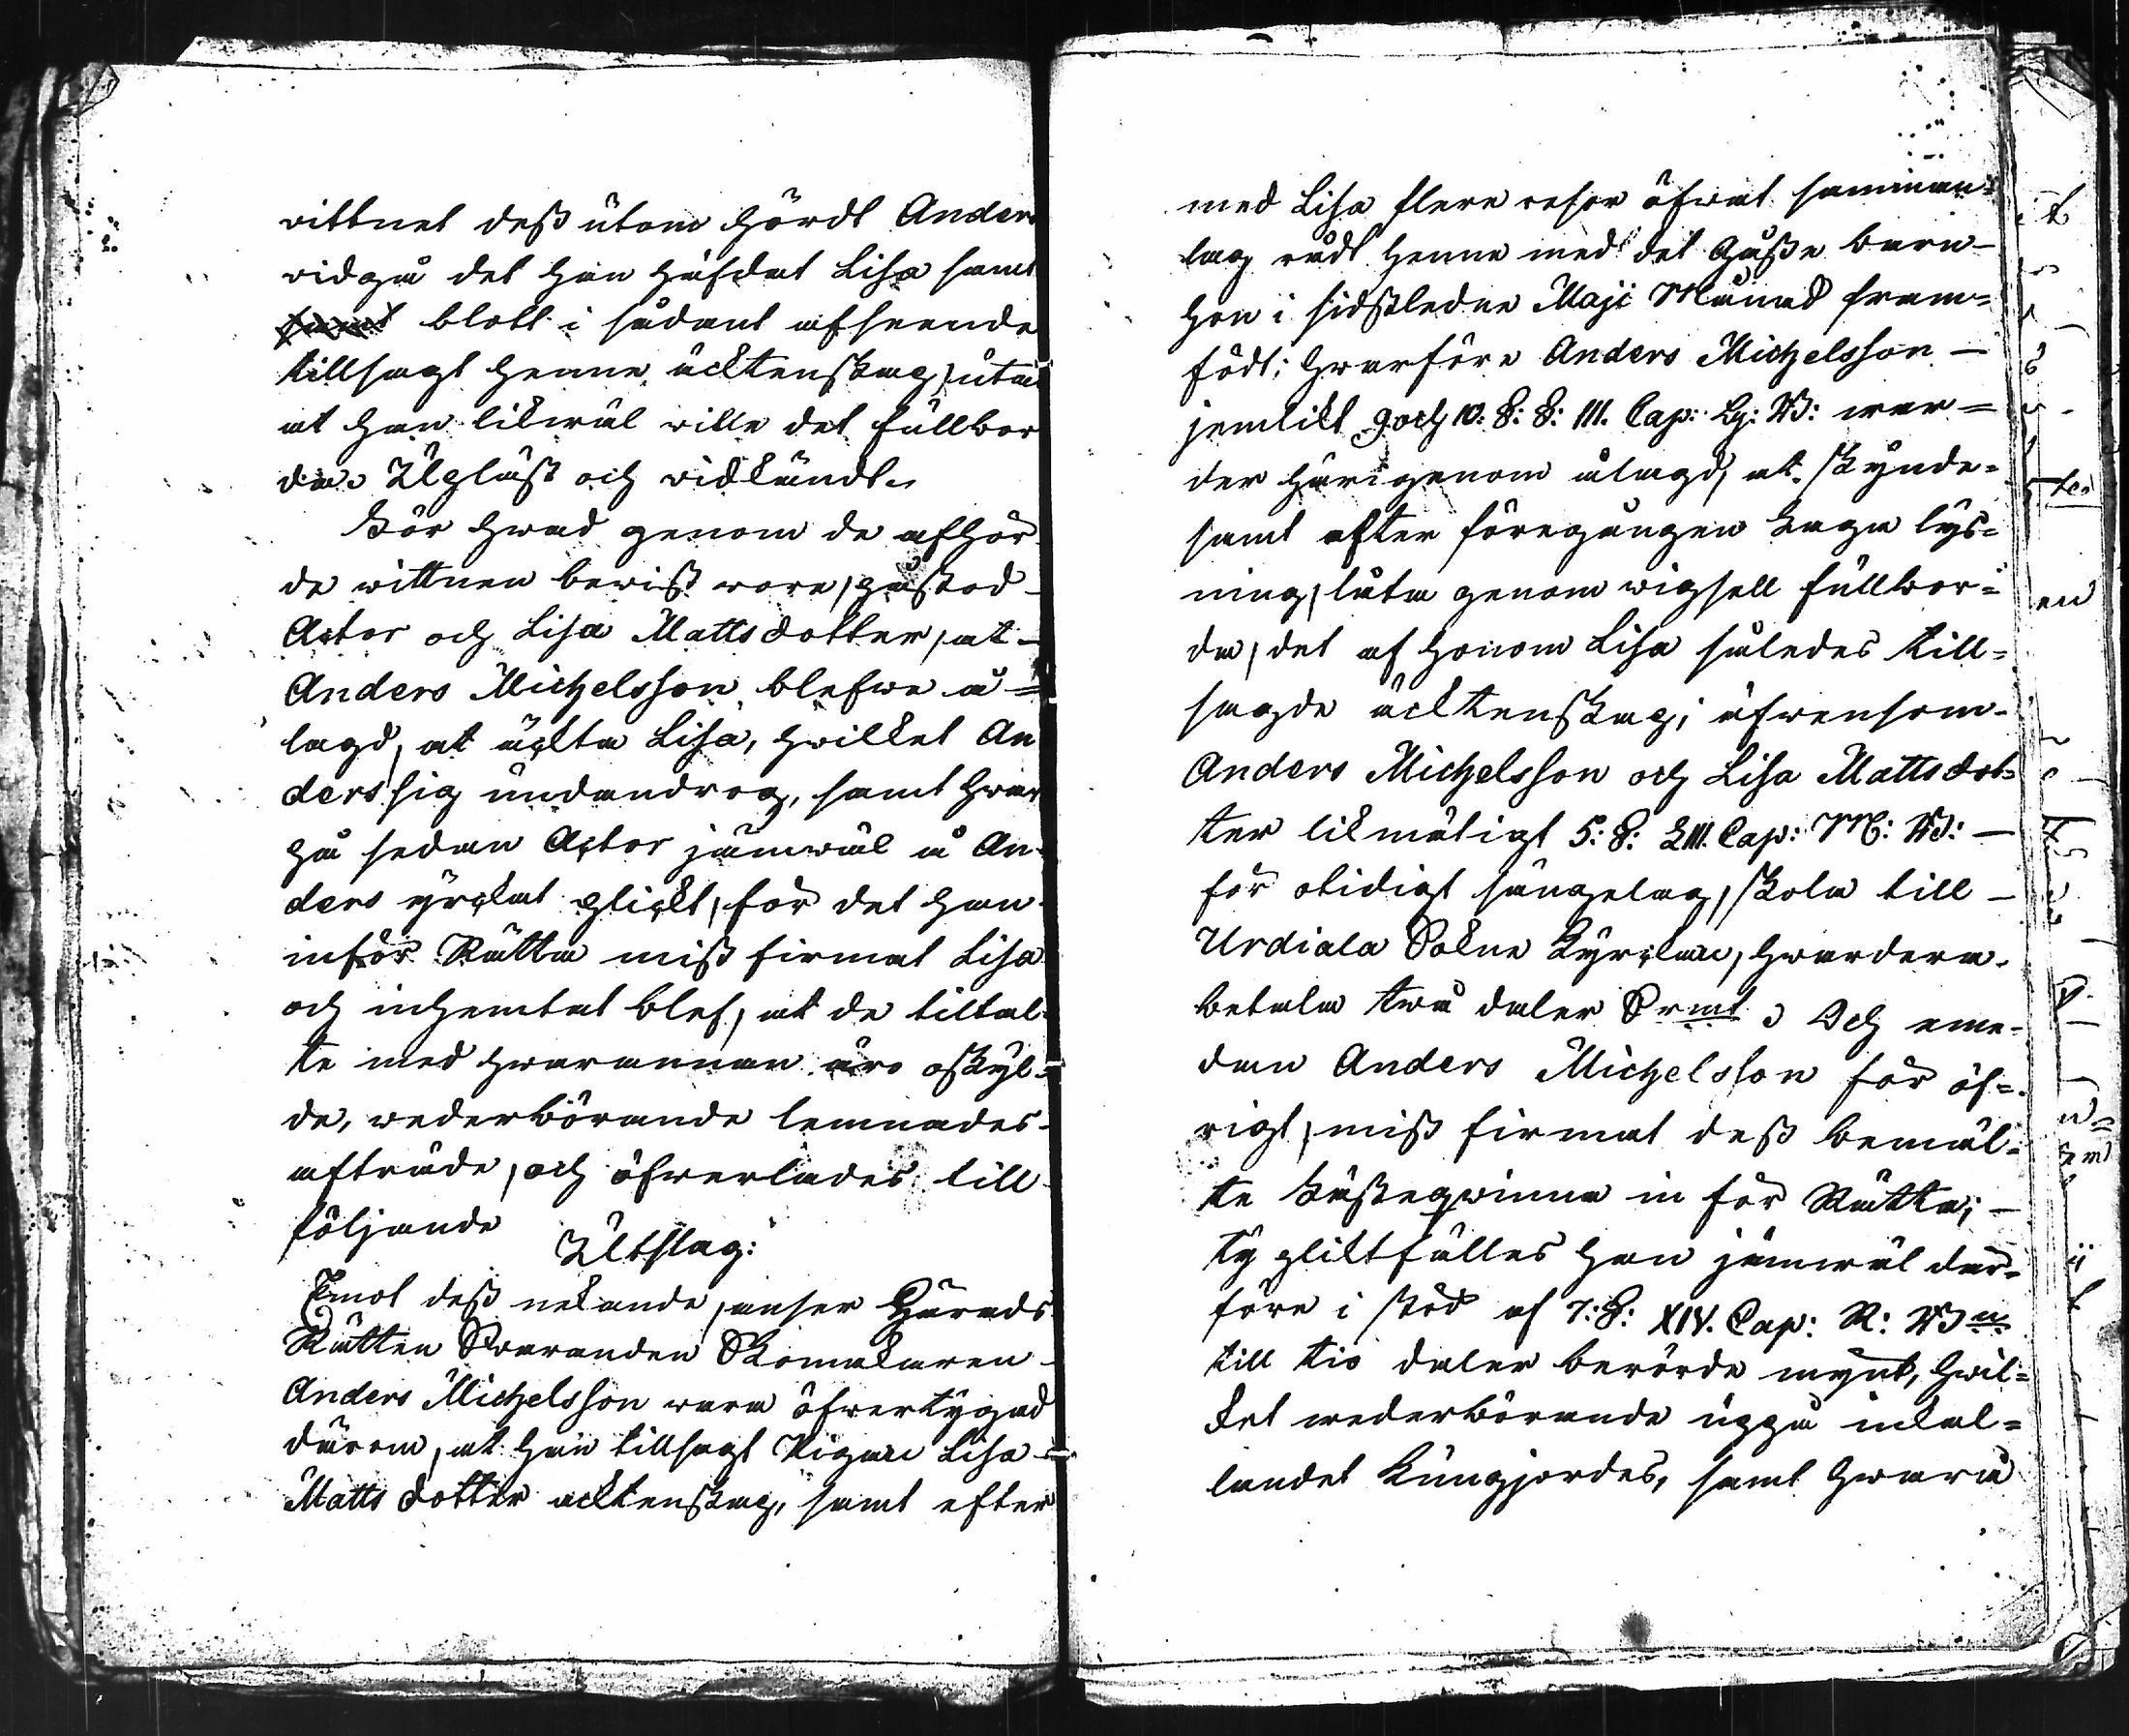 wittnet dess utom hördt Anders
widgå det han häfdat Lisa samt
blott i sådant afseende
tillsagt henne äcktenskap, utan
at han likwäl wille det fullbor
da. Upläst och widkändt.
För hwad genom de afhör
de wittnen bewist wore, påstod
Actor och Lisa Matts dotter, at
Anders Michelsson blefwe å=
lagd, at äckta Lisa, hwilket An
ders sig undandrog, samt hwar
på sedan Actor jämwäl å An
ders yrckat plickt, för det han
inför Rätta missfirmat Lisa
och inhemtat blef, at de tiltal
te med hwarannan äro oskyl=
de, wederbörande lemnades
afträde, och öfwerlades till
följande
Utslag:
Emot dess nekande, anser Härads
Rätten Swaranden Skomakaren
Anders Michelsson wara öfwertygad
därom, at han tillsagt Pigan Lisa
Matts dotter äcktenskap, samt efter
med Lisa flere resor öfwat samman=
lag rådt henne med det Gosse barn
hon i sidstledne Maji Månad fram=
födt; hwarföre Anders Michelsson
jemlikt 9 och 10. §: §: III. Cap: Gg: B: war=
der härigenom ålagd, at skynde=
samt efter föregången Laga lys=
ning, låta genom wigsell fullbor=
da, det af honom Lisa således till=
sagde äcktenskap; äfwensom
Anders Michelsson och Lisa Matts dot=
ter likmätigt 5: §: LIII. Cap: M: B:
för otidigt sängelag, skola till
Urdiala Sokne Kyrckan, hwardera
betala twå daler Srmt. Och eme=
dan Anders Michelsson för öf=
rigt, missfirmat dess bemäl=
te Fästeqwinna in för Rätta;
ty pliktfälles han jämwäl där=
före i stöd af 7: §: XIV. Cap: R: Bn
till tio daler berörde mynt, hwil=
ket wederbörande uppå inkal=
landet kungjordes, samt hwarå